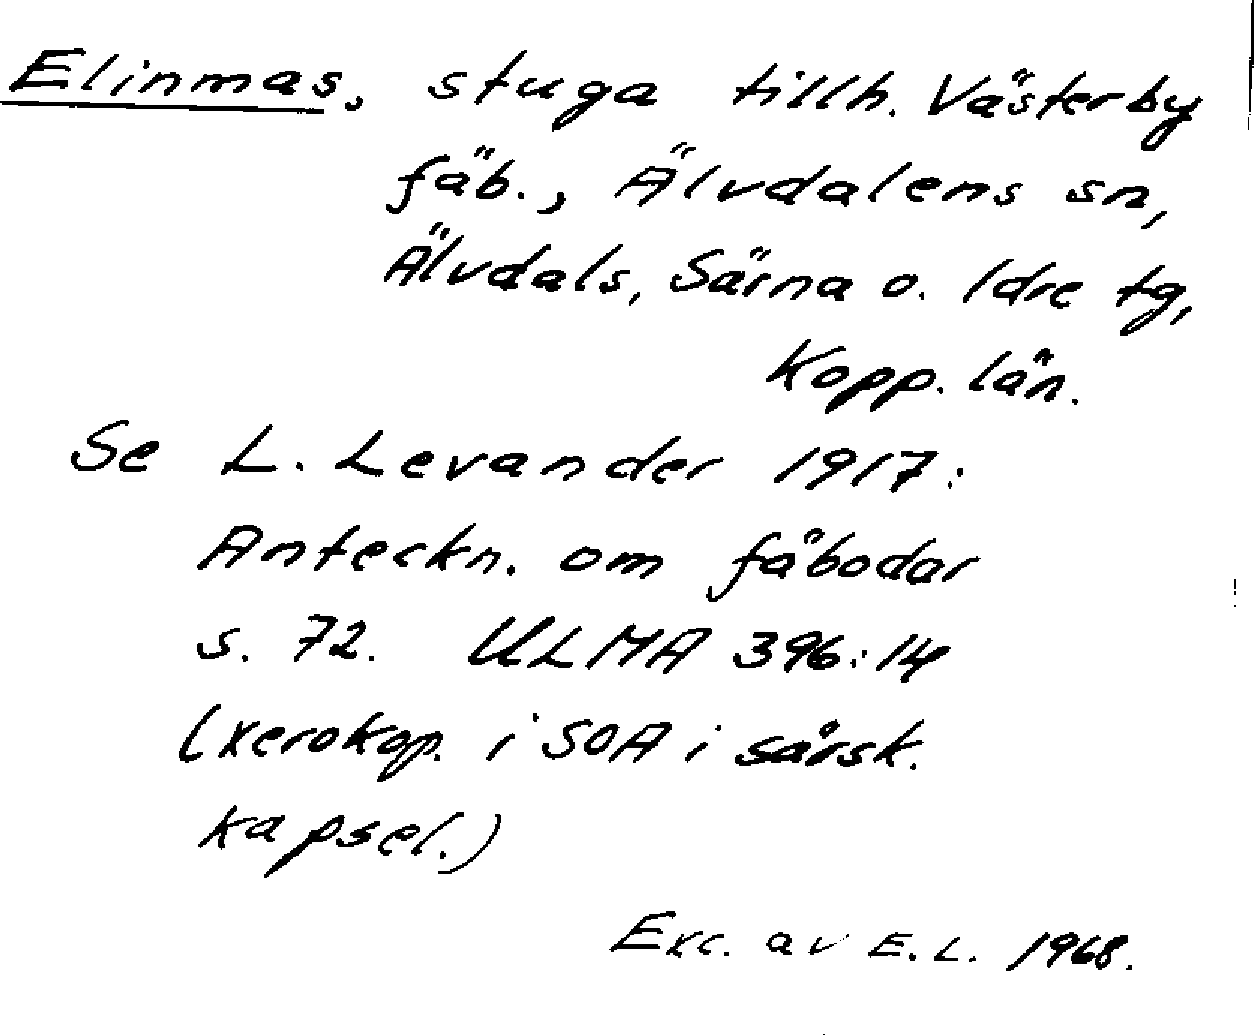 Elinmas, stuga tillh. Västerby
fäb., Älvdalens sn,
Älvdals, Särna o. Idre tg,
Kopp. län.
Se L. Levander 1917:
Anteckn. om fäbodar
s. 72. ULMA 396:14
(xerokop. i SOA i särsk.
kapsel.)
Exc. av E.L. 1968.